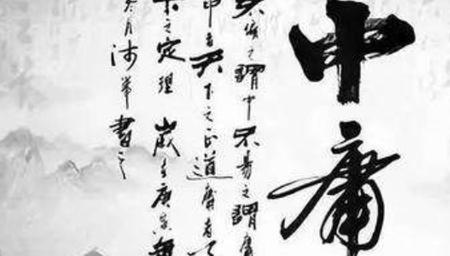 中庸
不偏之謂中不易之謂庸
中者天下之正道庸者天
下之定理 歲在庚寅
冬月書之